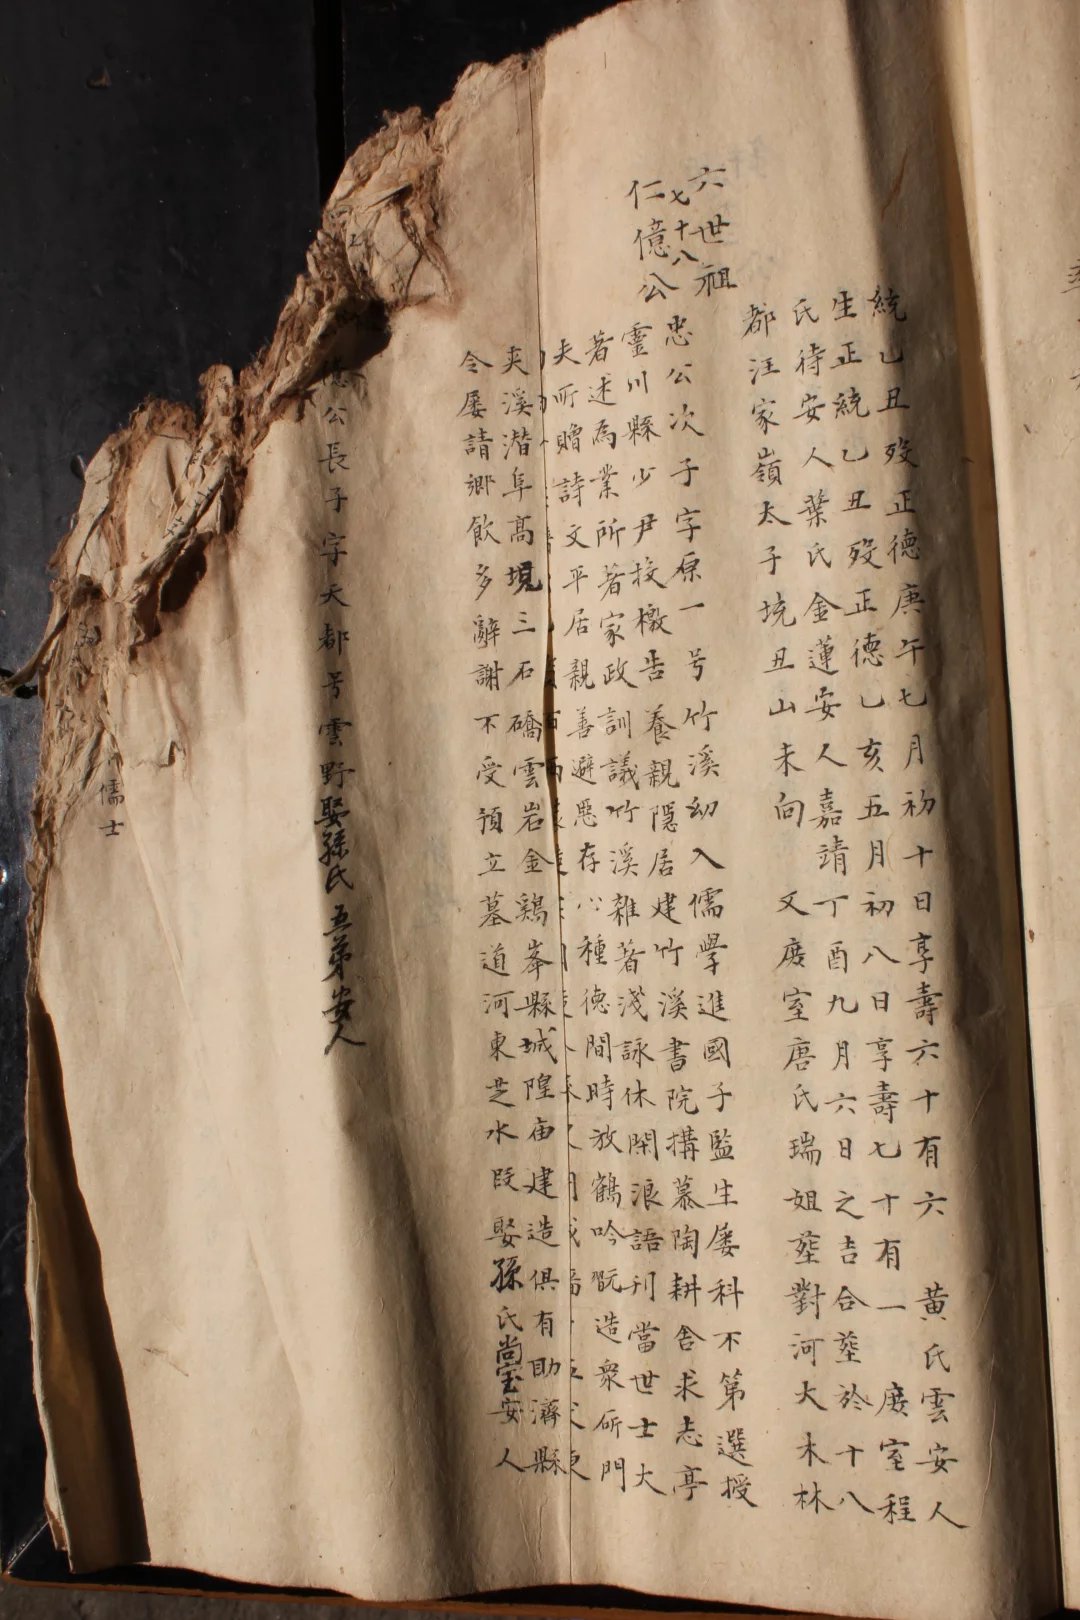 統乙丑歿正德庚午七月初十日享壽六十有六 黃氏雲安人
生正統乙丑歿正德乙亥五月初八日享壽七十有一 庶室程
氏待安人葉氏金蓮安人嘉靖丁酉九月六日之吉合塟於十八
都汪家嶺太子坑丑山未向 又庶室唐氏瑞姐塟對河大木林
六世祖
七十八
仁億公
忠公次子字原一号竹溪幼入儒學進國子監生屡科不第選授
靈川縣少尹投檄告養親隱居建竹溪書院搆慕陶耕舍求志亭
著述為業所著家政訓議竹溪雜著淺詠休閑浪語刊當世士大
夫所贈詩文平居親善避惡存心種德間時放鶴吟翫造衆斫門
夾溪潜阜高堨三石硚雲岩金鷄峯縣城隍庙建造俱有助濟縣
令屡請鄉飲多辭謝不受預立墓道河東芝水段娶孫氏尚宝安人
億公長子字天都号雲野娶孫氏五弟安人
儒士